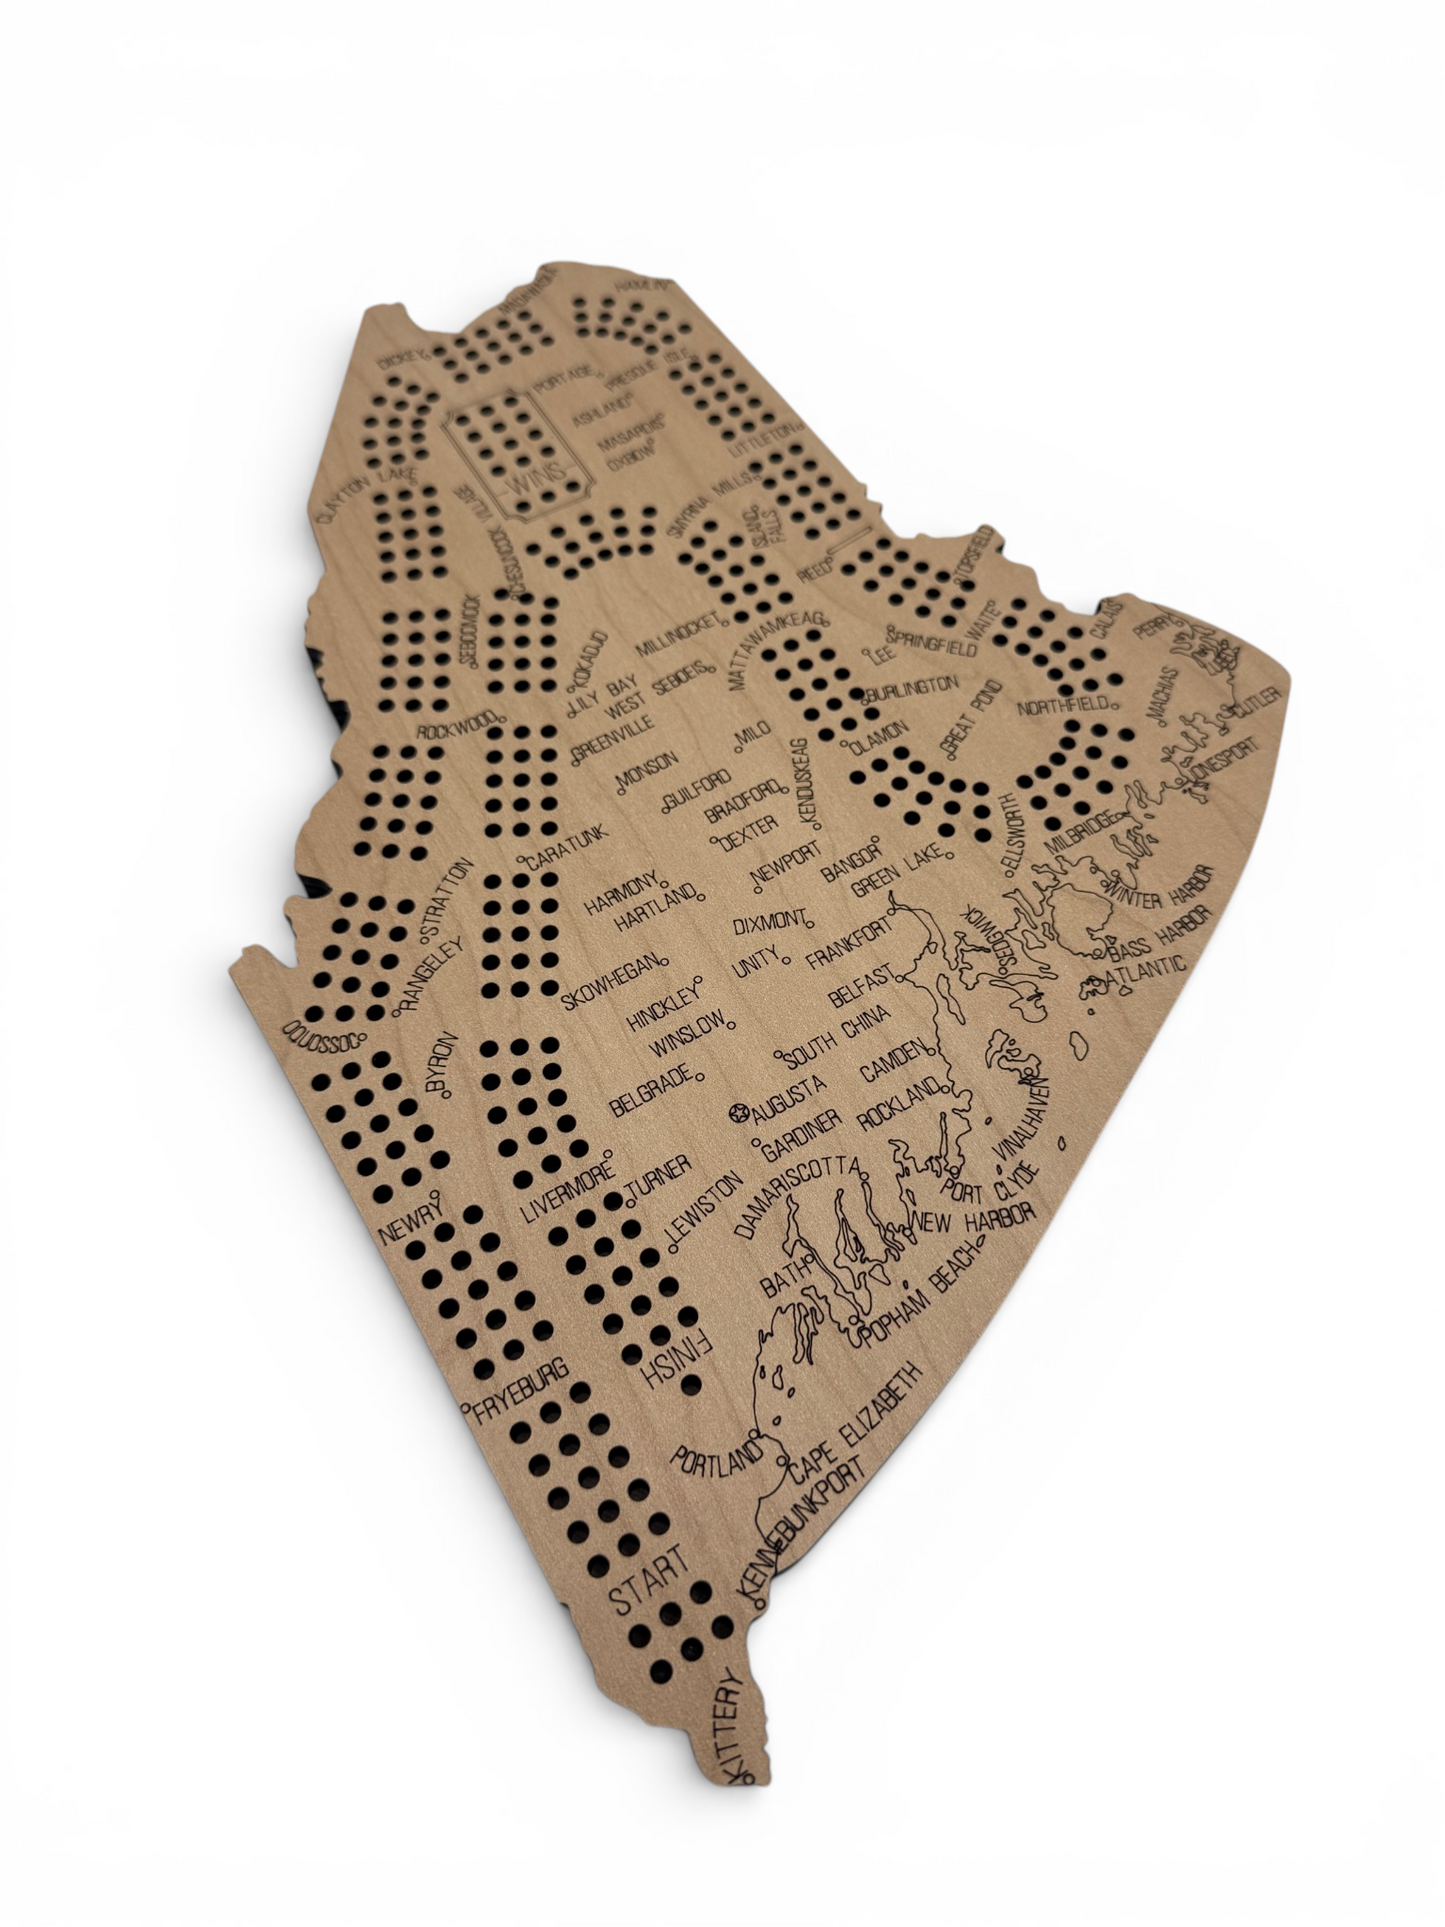 MADAWASKA
HAMLIN
DICKEY
PORTAGE
PRESQUE ISLE
ASHLAND
MASARDIS
OXBOW
LITTLETON
WINS
CLAYTON LAKE
CHESUNCOOK VILLAGE
SMYRNA MILLS
ISLAND
FALLS
REED
TOPSFIELD
SEBOOMOOK
KOKADJO
MILLINOCKET
MATTAWAMKEAG
LEE
SPRINGFIELD
WAITE
CALAIS
PERRY
LILY BAY
WEST SEBOEIS
BURLINGTON
GREAT POND
NORTHFIELD
MACHIAS
CUTLER
ROCKWOOD
GREENVILLE
MILO
OLAMON
JONESPORT
MONSON
GUILFORD
BRADFORD
KENDUSKEAG
DEXTER
ELLSWORTH
MILBRIDGE
CARATUNK
NEWPORT
BANGOR
GREEN LAKE
WINTER HARBOR
STRATTON
HARMONY
HARTLAND
DIXMONT
FRANKFORT
SEDGWICK
BASS HARBOR
ATLANTIC
RANGELEY
SKOWHEGAN
UNITY
BELFAST
OQUOSSOC
HINCKLEY
WINSLOW
SOUTH CHINA
CAMDEN
BYRON
BELGRADE
AUGUSTA
GARDINER
ROCKLAND
VINALHAVEN
LIVERMORE
TURNER
LEWISTON
DAMARISCOTTA
PORT CLYDE
NEW HARBOR
NEWRY
BATH
POPHAM BEACH
FINISH
FRYEBURG
PORTLAND
CAPE ELIZABETH
KENNEBUNKPORT
START
KITTERY